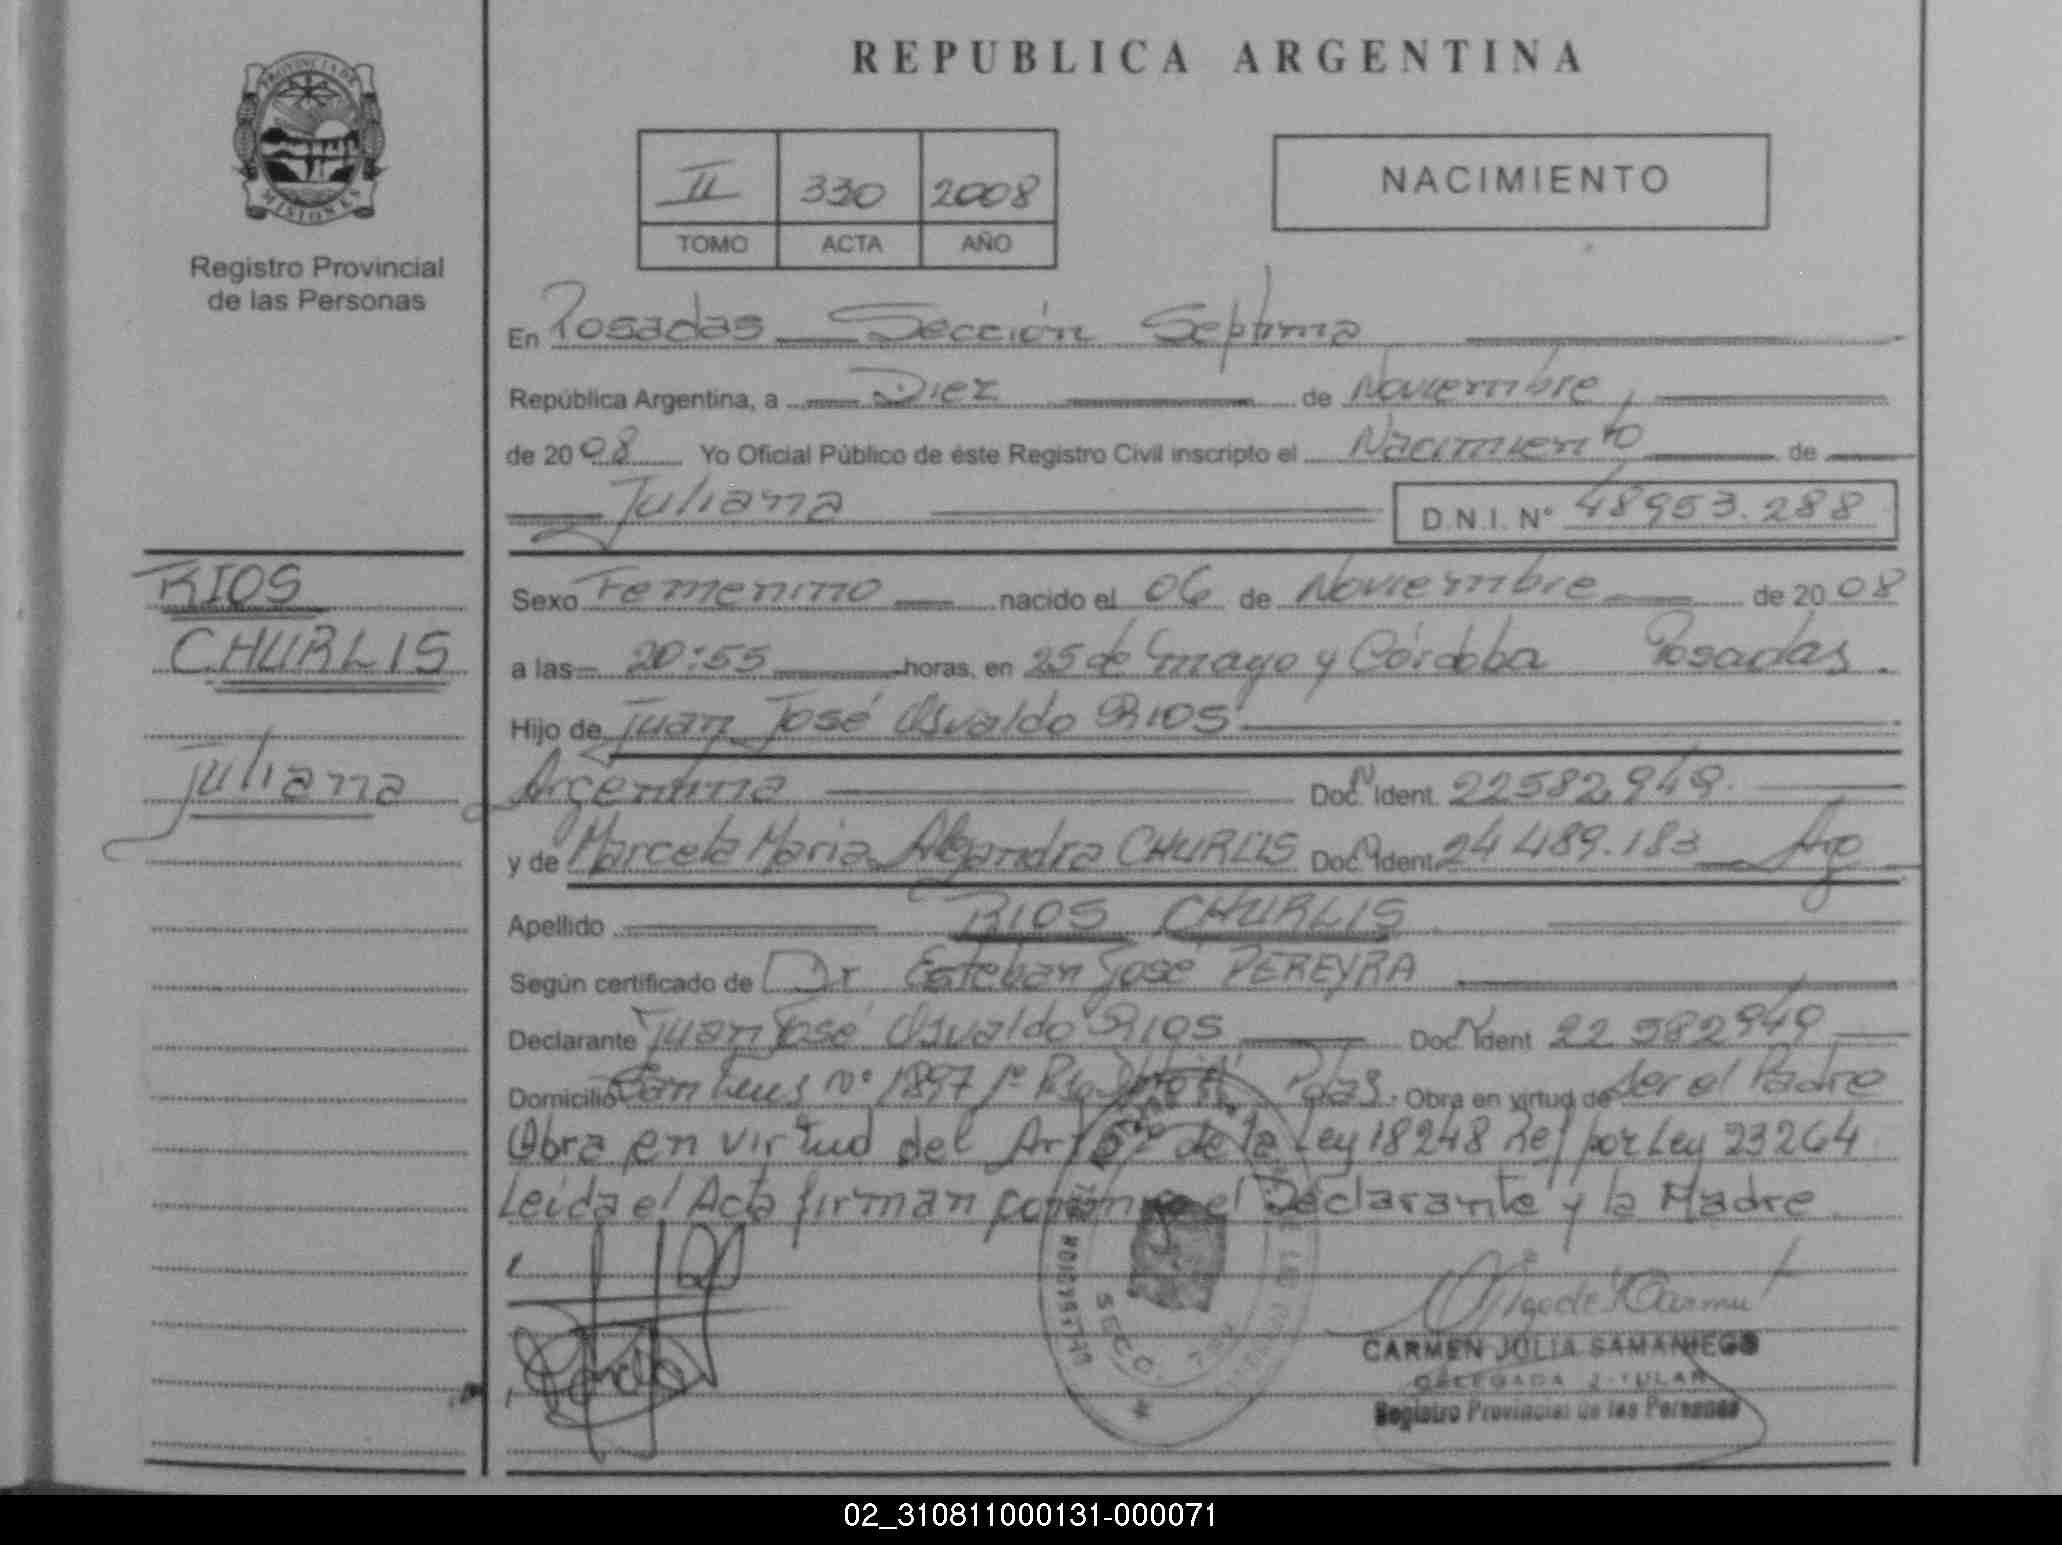 PROVINCIA DE
MISIONES
Registro Provincial
de las Personas
RIOS
CHURLIS
Juliana
REPUBLICA ARGENTINA
II 330 2008
TOMO ACTA AÑO
NACIMIENTO
En Posadas Sección Septima
República Argentina, a Diez de Noviembre,
de 2008 Yo Oficial Público de éste Registro Civil inscripto el Nacimiento de
Juliana D.N.I. N° 48953.288
Sexo Femenino nacido el 06 de Noviembre de 2008
a las 20:55 horas, en 25 de Mayo y Córdoba Posadas.
Hijo de Juan José Osvaldo RIOS
Argentina Doc. N Ident. 22582949.
y de Marcela Maria Alejandra CHURLIS Doc. Ident. 24489.183 Arg
Apellido RIOS CHURLIS
Según certificado de Dr Esteban José PEREYRA
Declarante Juan José Osvaldo RIOS Doc. N Ident 22582949
Domicilio n° 1897 1° Pdas. Obra en virtud de ser el Padre
Obra en virtud del Art de la Ley 18248 Ref por Ley 23264
Leida el Acta firman el Declarante y la Madre
SECC. 7
CARMEN JULIA SAMANIEGO
DELEGADA TITULAR
Registro Provincial de las Personas
02_310811000131-000071